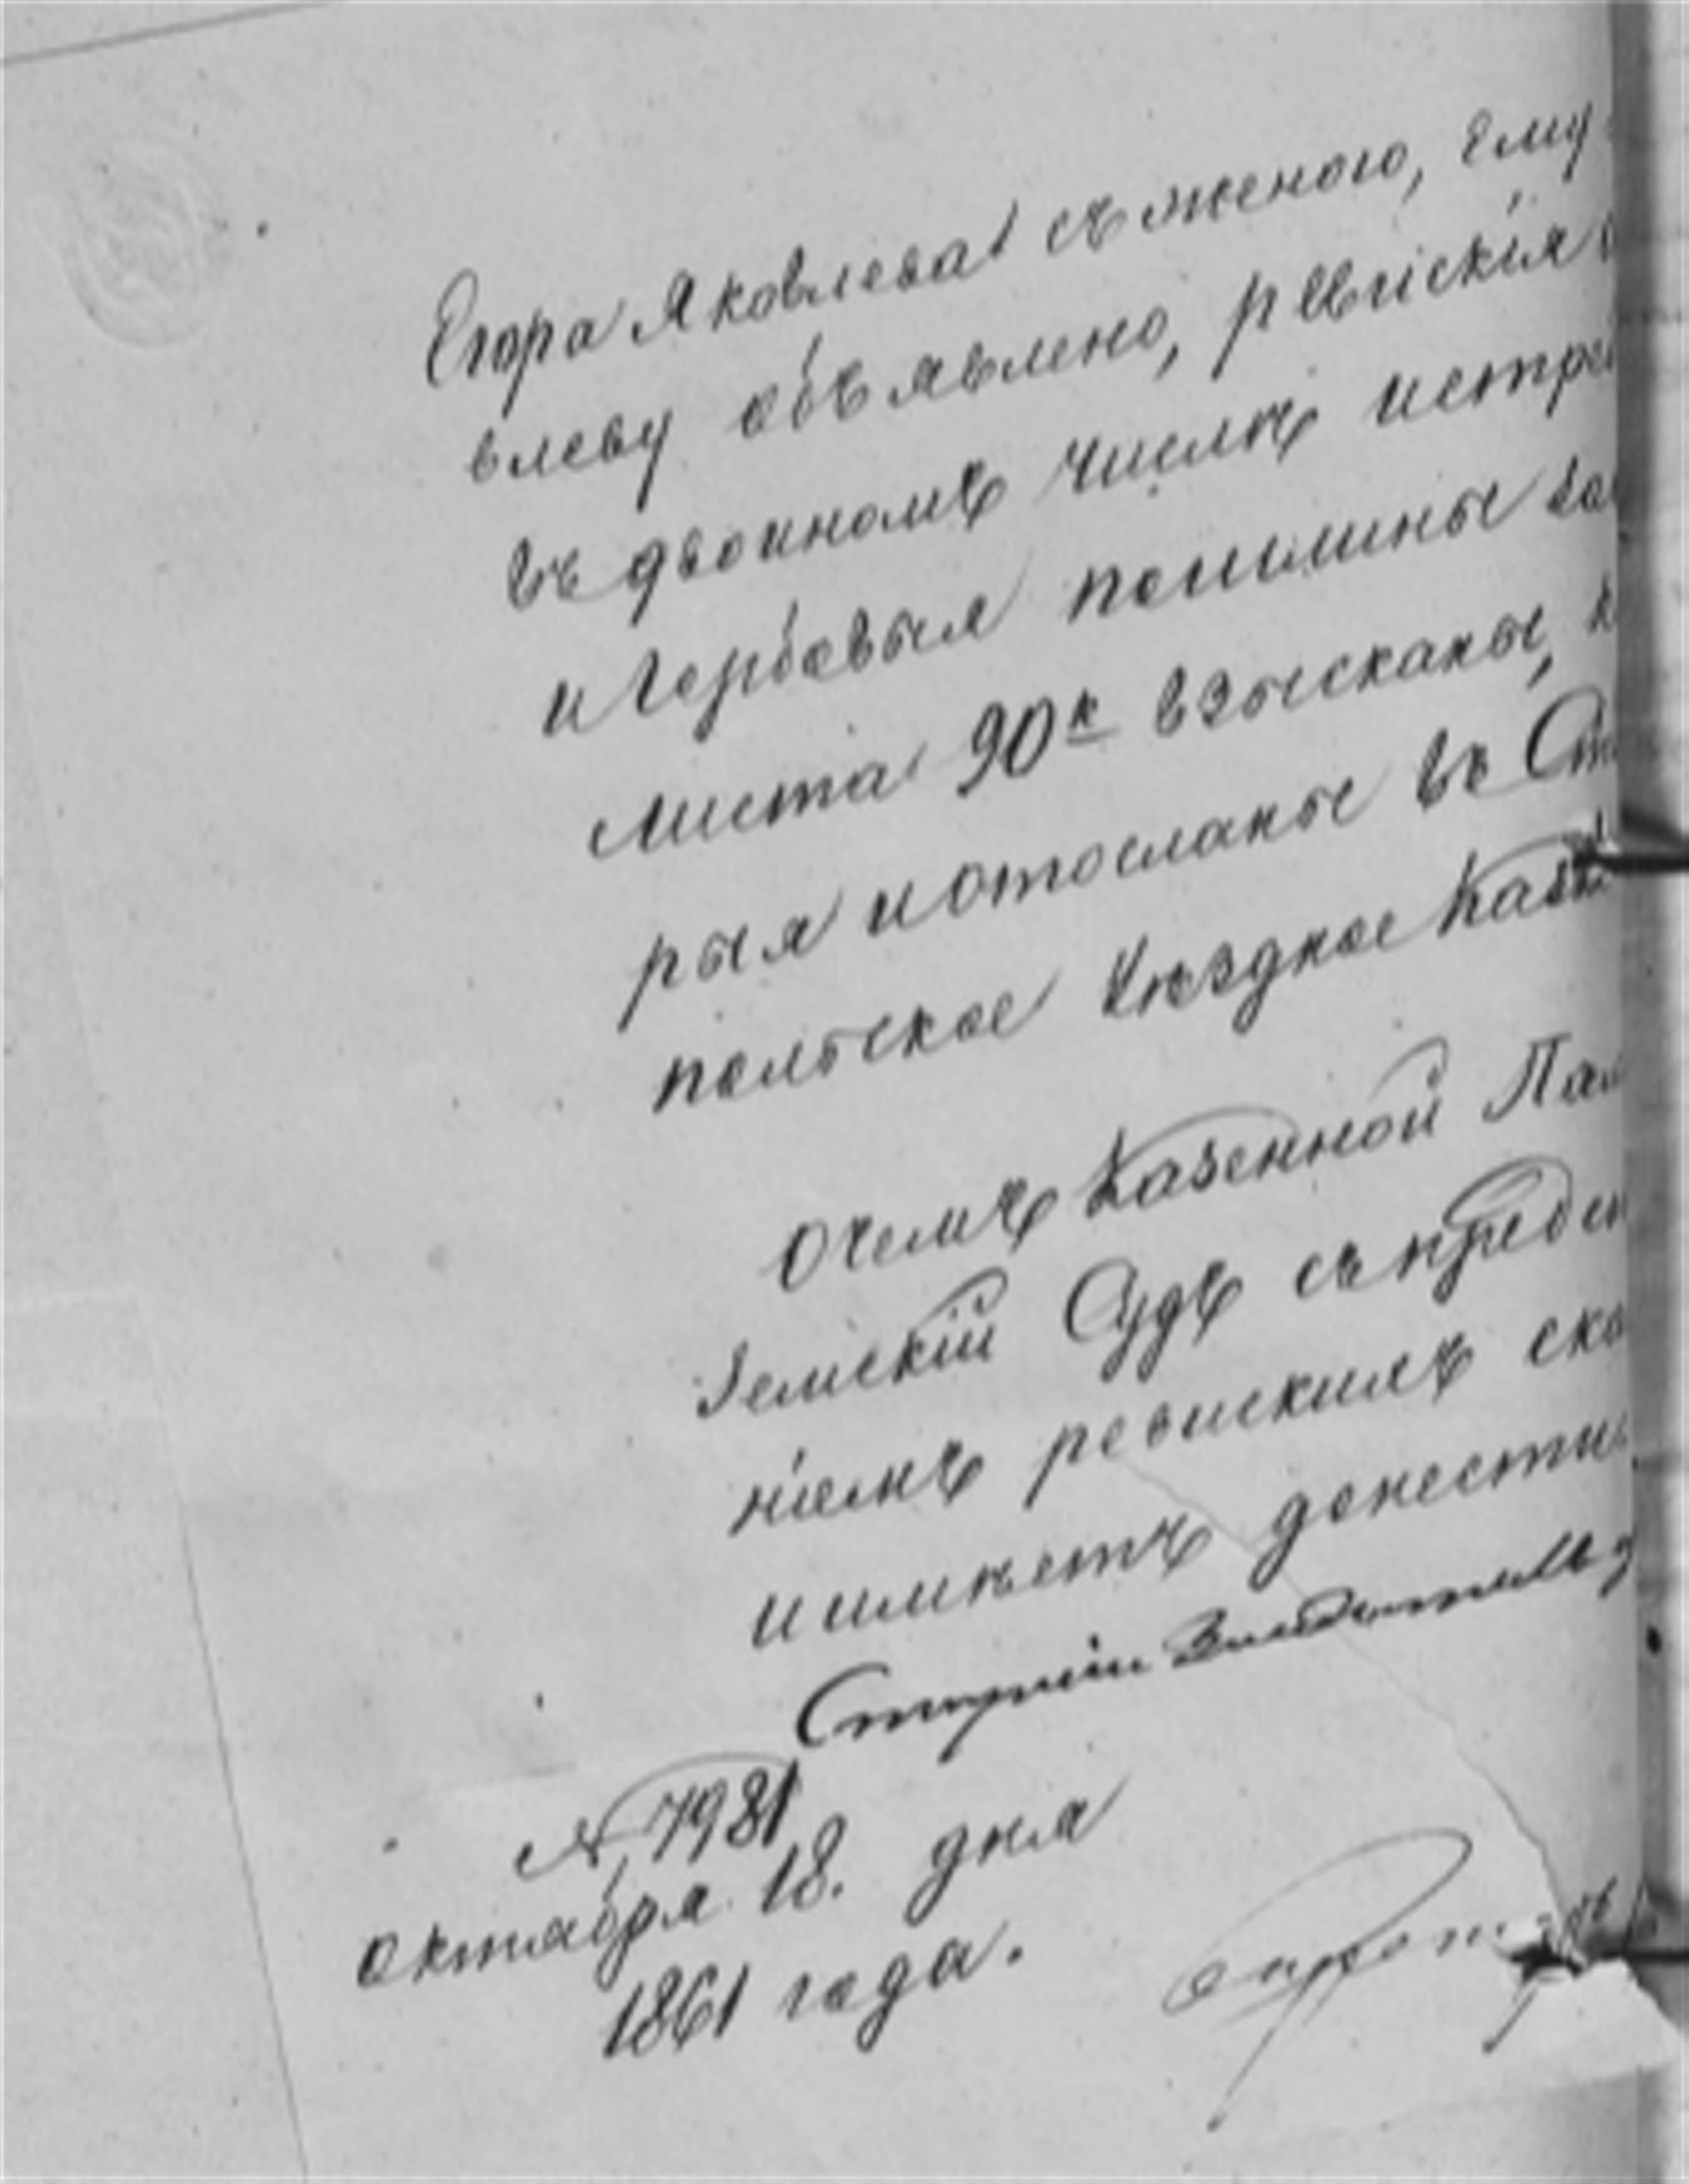 Егора Яковлева съ женою, ему
влеву объявлено, ревискія
въ двоиномъ числѣ истре
и Гербовыя пошлины за
листа 90к взысканы,
рыя и отосланы въ Ста
польское Уѣздное Казн
О чемъ Казенной Пал
Земскій Судъ съ предс
ніемъ ревискихъ ска
имѣетъ донести
№ 7981
Октября 18. дня
1861 года.